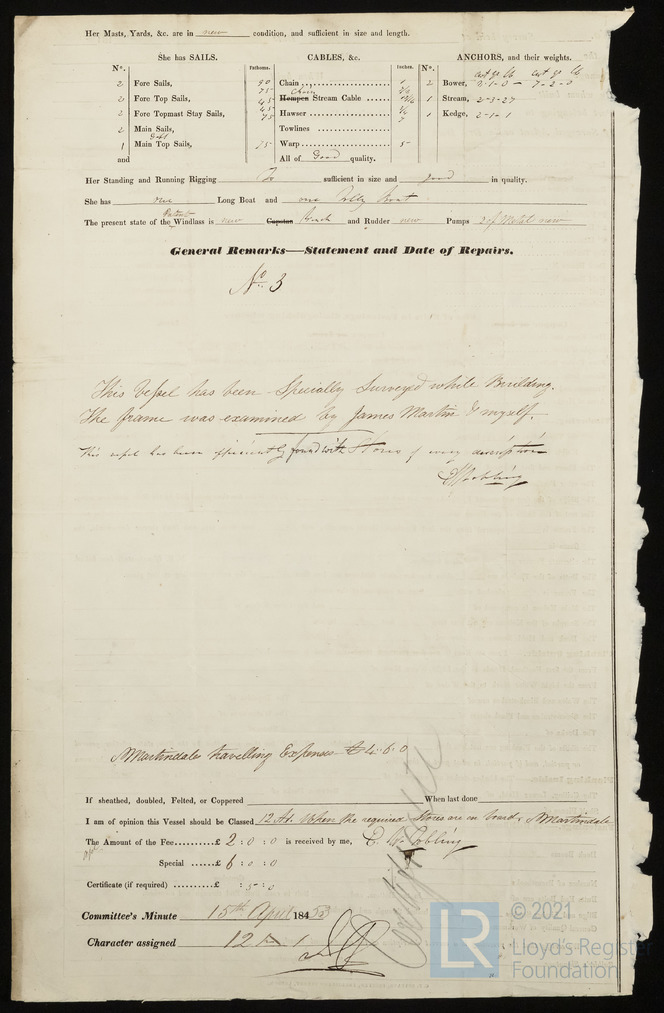 Her Masts, Yards, &c. are in new condition, and sufficient in size and length.
She has SAILS. CABLES, &c. ANCHORS, and their weights.
Nº. Fathoms. Inches. Nº.
2 Fore Sails, 90 Chain 1 2 Bower,
2 Fore Top Sails, 75 Chain Hempen Stream Cable 1 Stream, 2-3-27
2 Fore Topmast Stay Sails, 75 Hawser 1 Kedge, 2-1-1
2 Main Sails, Towlines 7
1 Main Top Sails, 75 Warp 5
and All of Good quality.
Her Standing and Running Rigging sufficient in size and good in quality.
She has one Long Boat and one Jolly Boat
The present state of the Patent Windlass is new Capstan Winch and Rudder new Pumps 2 of Metal new
General Remarks—Statement and Date of Repairs.
No 3
This Vessel has been Specially Surveyed while Building.
The frame was examined by James Martin & myself.
This vessel has been efficiently found with Stores of every description
Martindales travelling Expenses £4.6.0
If sheathed, doubled, Felted, or Coppered When last done
I am of opinion this Vessel should be Classed 12 A1. When the required Stores are on board. Martindale
The Amount of the Fee £ 2 : 0 : 0 is received by me,
Special £ 6 : 0 : 0
Certificate (if required) £ : 5 : 0
Committee's Minute 15th April 1853
Character assigned 12 A 1
© 2021
LR
Lloyd's Register
Foundation